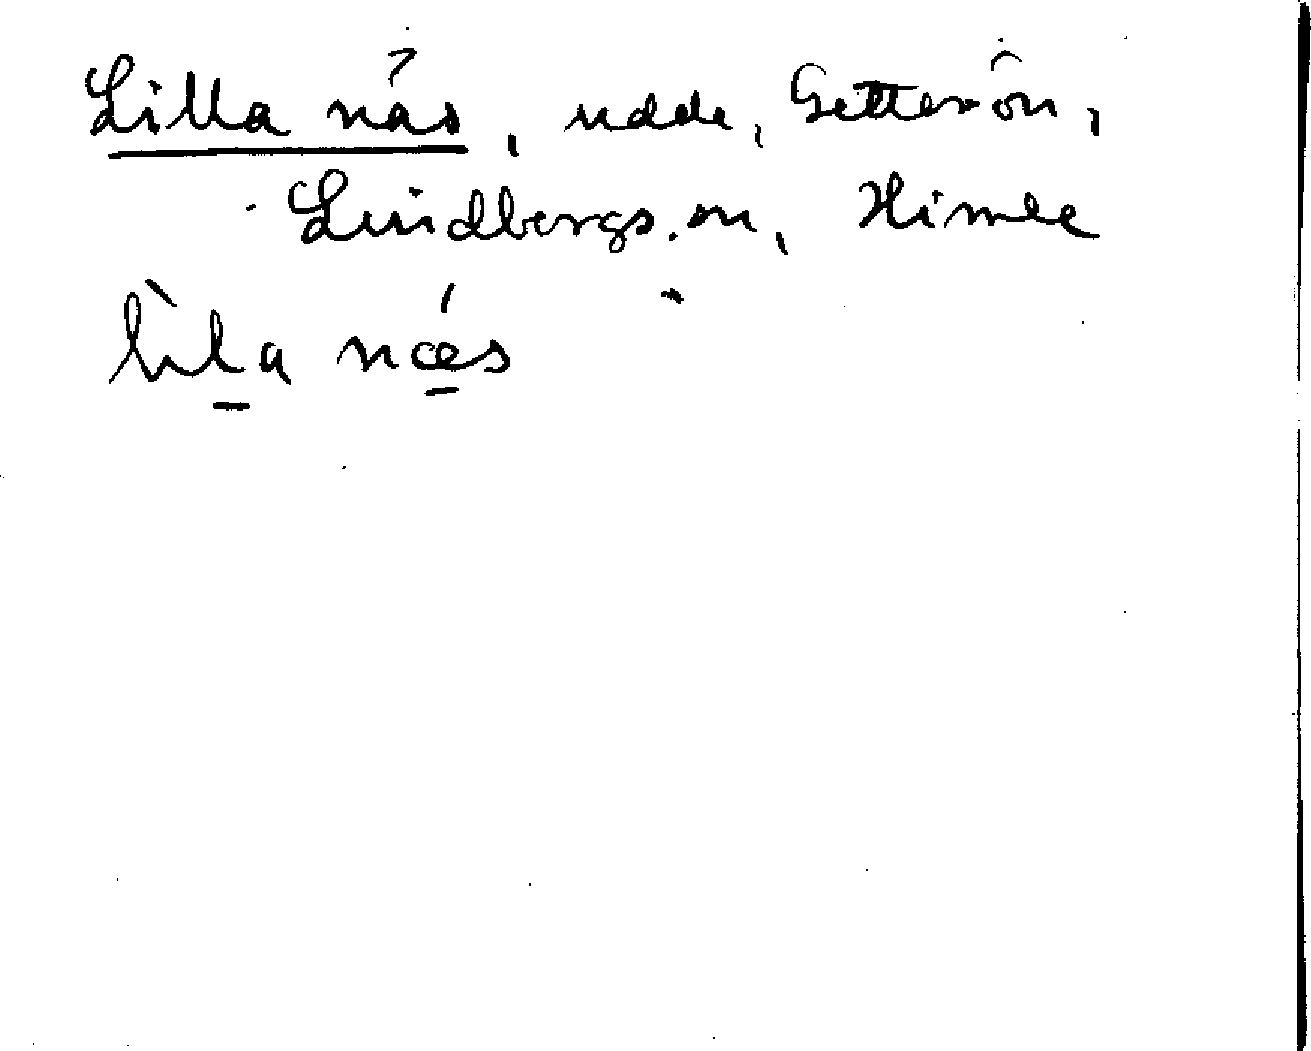 Lilla näs, udde, Getterön,
Lindbergs sn, Himle
lìla næ´s